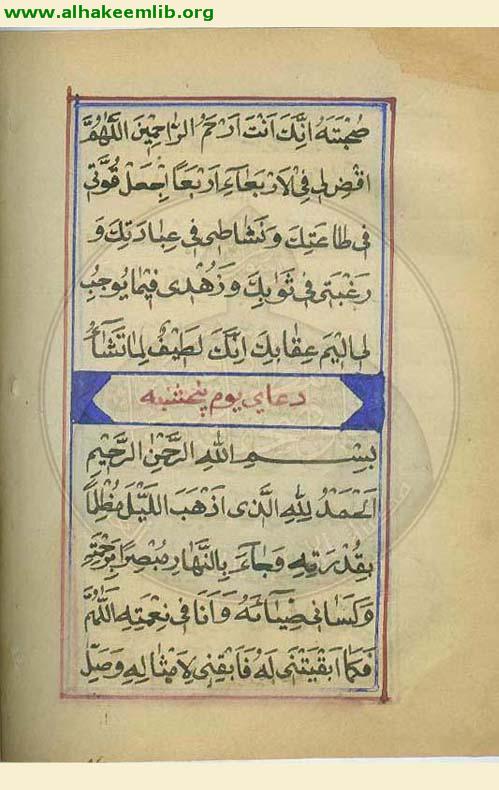 www.alhakeemlib.org
صُحْبَتَهُ اِنَّكَ اَنْتَ اَرْحَمُ الرَّاحِمِينَ اَللّٰهُمَّ
اقْضِ لِى فِى الْاَرْبَعَآءِ اَرْبَعًا اِجْعَلْ قُوَّتِى
فِى طَاعَتِكَ وَنَشَاطِى فِى عِبَادَتِكَ وَ
رَغْبَتِى فِى ثَوَابِكَ وَزُهْدِى فِيمَا يُوجِبُ
لِى اَلِيمَ عِقَابِكَ اِنَّكَ لَطِيفٌ لِمَا تَشَآءُ
دعاي يوم پنجشنبه
بِسْمِ اللهِ الرَّحْمٰنِ الرَّحِيمِ
اَلْحَمْدُ لِلّٰهِ الَّذِى اَذْهَبَ اللَّيْلَ مُظْلِمًا
بِقُدْرَتِهِ وَجَآءَ بِالنَّهَارِ مُبْصِرًا بِرَحْمَتِهِ
وَكَسَانِى ضِيَآئَهُ وَاَنَا فِى نِعْمَتِهِ اَللّٰهُمَّ
فَكَمَا اَبْقَيْتَنِى لَهُ فَاَبْقِنِى لِاَمْثَالِهِ وَصَلِّ